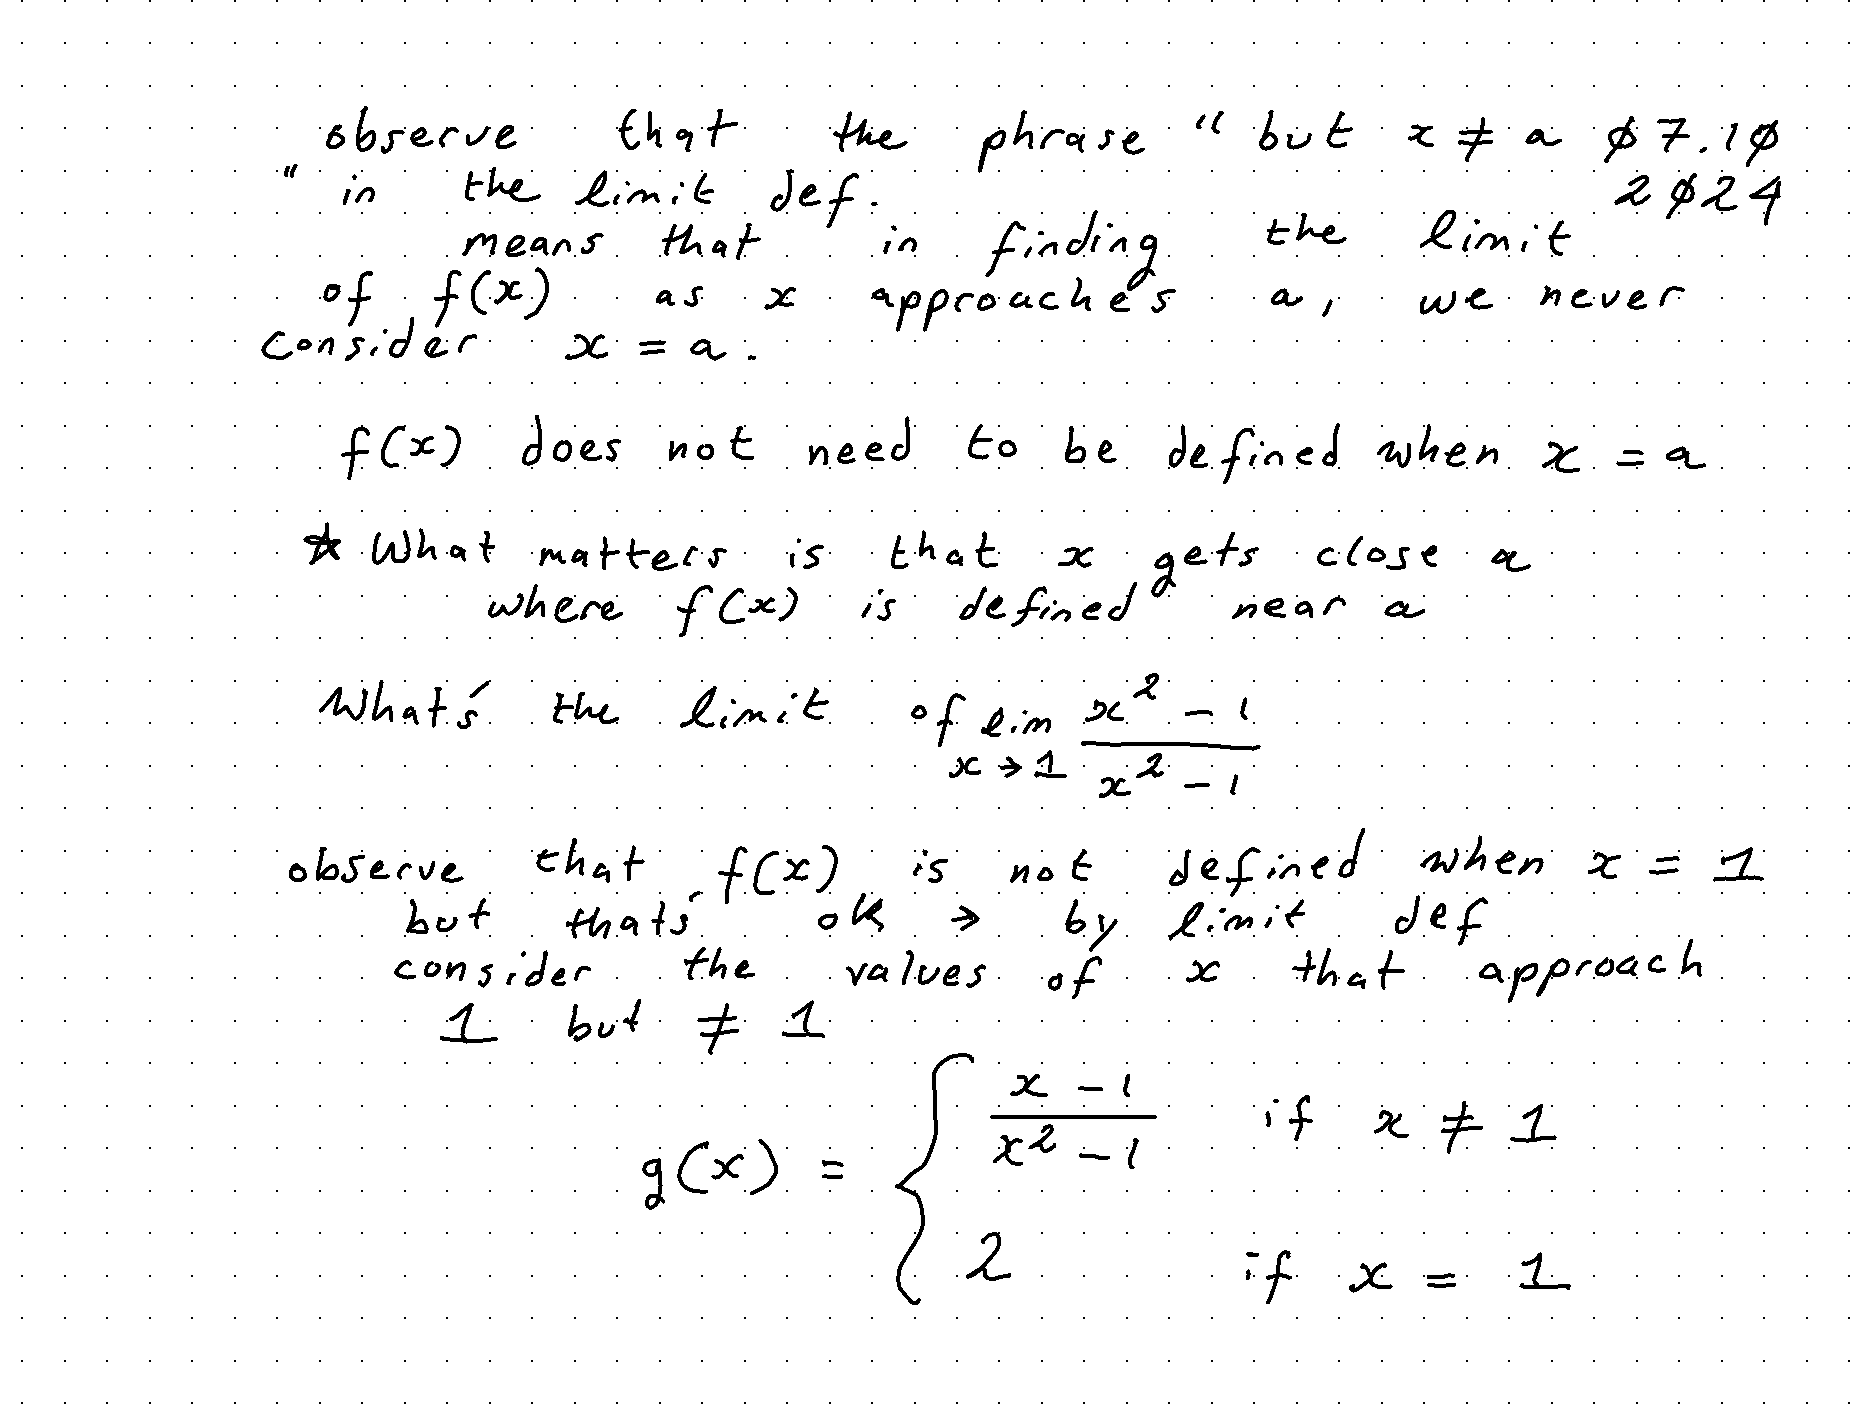 observe that the phrase " but x ≠ a 07.10
" in the limit def. 2024
means that in finding the limit
of f(x) as x approaches a, we never
consider x = a.
f(x) does not need to be defined when x = a
☆ What matters is that x gets close a
where f(x) is defined near a
What's the limit of lim x→1 (x² - 1)/(x² - 1)
observe that f(x) is not defined when x = 1
but that's ok → by limit def
consider the values of x that approach
1 but ≠ 1
g(x) = { (x - 1)/(x² - 1) if x ≠ 1
2 if x = 1